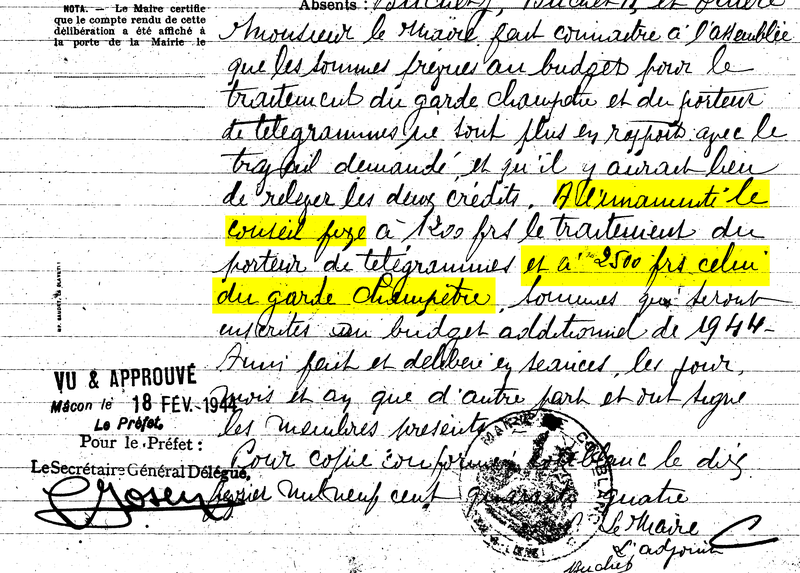 Absents :
NOTA. — Le Maire certifie
que le compte rendu de cette
délibération a été affiché à
la porte de la Mairie le
Monsieur le Maire fait connaitre à l'assemblée
que les sommes prévues au budget pour le
traitement du garde champêtre et du porteur
de télégrammes ne sont plus en rapport avec le
travail demandé et qu'il y aurait lieu
de relever les deux crédits. A l'unanimité le
conseil fixe à 1200 frs le traitement du
porteur de télégrammes et à 2500 frs celui
du garde Champêtre, sommes qui seront
inscrites au budget additionnel de 1944-
Ainsi fait et délibéré en séances, les jour,
mois et an que d'autre part et ont signé
les membres présents
Pour copie conforme le dix
février mil neuf cent quarante quatre
Le Maire
L'adjoint
VU & APPROUVÉ
Mâcon le 18 FÉV. 1944
Le Préfet,
Pour le Préfet :
Le Secrétaire Général Délégué,